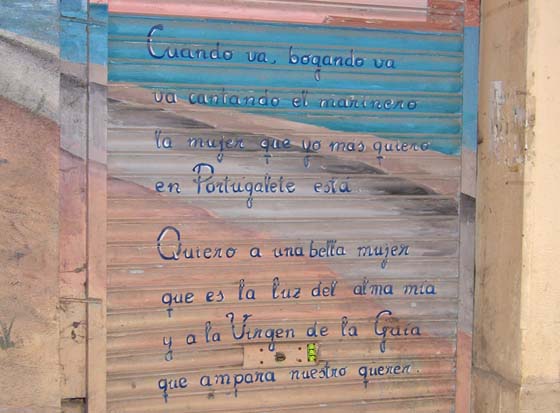 Cuando va, bogando va
va cantando el marinero
la mujer que yo mas quiero
en Portugalete está.
Quiero a una bella mujer
que es la luz del alma mía
y a la Virgen de la Guía
que ampara nuestro querer.